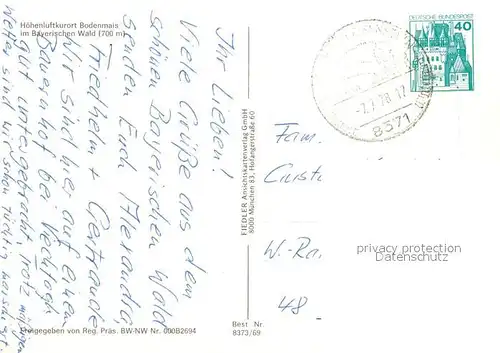 Höhenluftkurort Bodenmais
im Bayerischen Wald (700 m)
Ihr Lieben!
Viele Grüße aus dem
schönen Bayerischen Wald
senden Euch Alexandra
Friedhelm + Gertraude
Wir sind hier auf einem
Bauernhof bei
gut untergebracht, trotz
sind wir schon tüchtig marschiert.
Freigegeben von Reg. Präs. BW-NW Nr. 000B2694
FIEDLER Ansichtskartenverlag GmbH
8000 München 83, Hofangerstraße 60
Best Nr.
8373/69
DEUTSCHE BUNDESPOST
40
8371
Fam.
W.-Ra.
48
privacy protection
Datenschutz